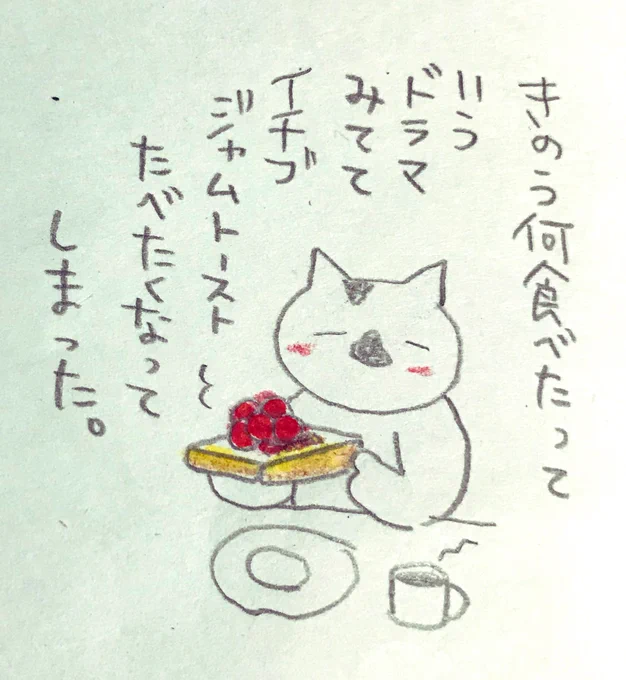 きのう何食べたって
いう
ドラマ
みてて
イチゴ
ジャムトースト
たべたくなって
しまった。